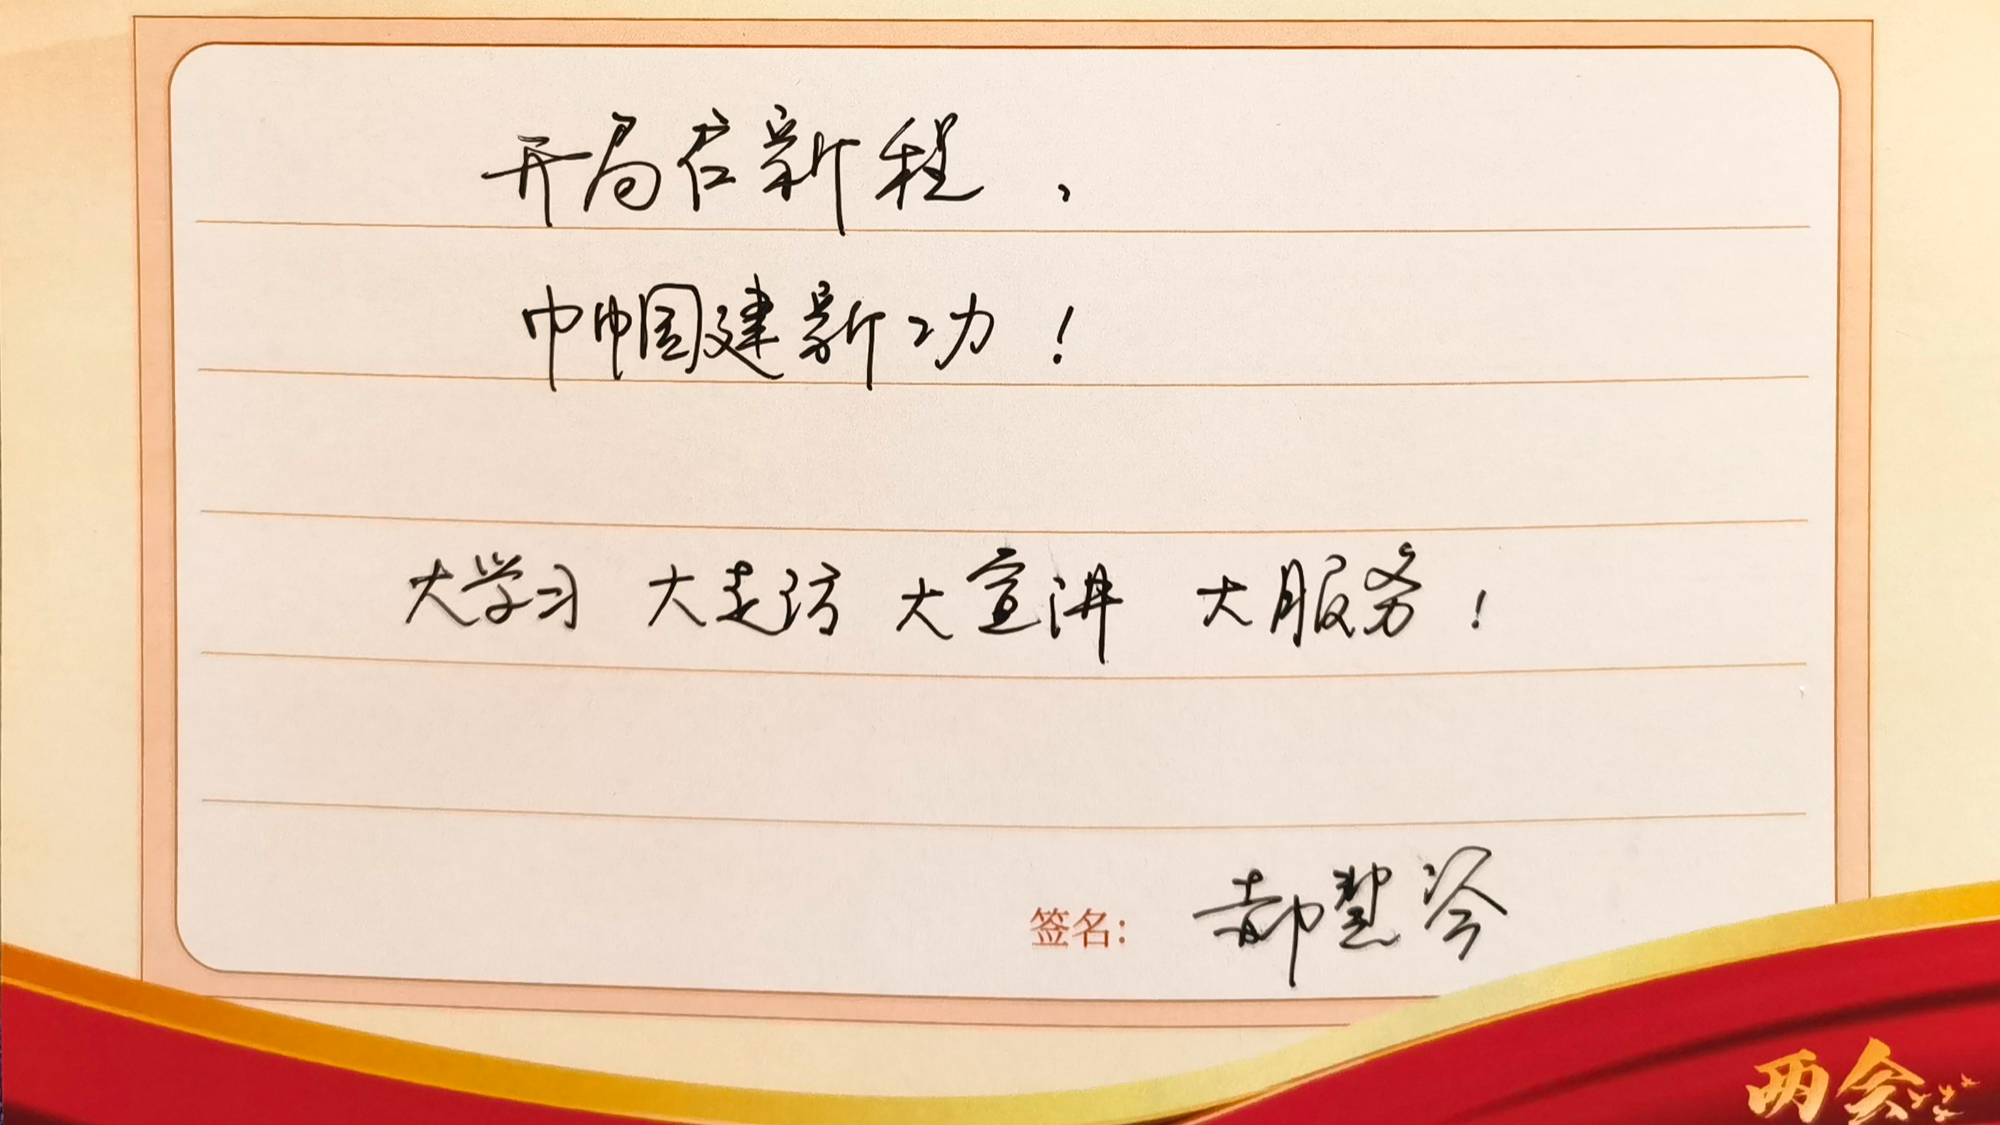 开局启新程，
巾帼建新功！
大学习 大走访 大宣讲 大服务！
签名：郝慧芬
两会